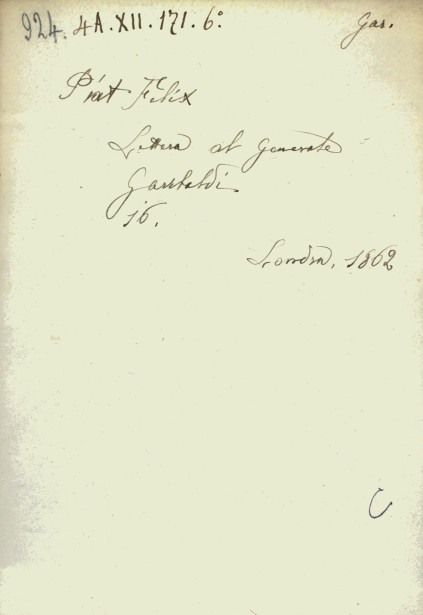 924. 4A.XII.171.6° Gar.
Piat Felix
Lettera al Generale
Garibaldi
16.
Londra, 1862
C